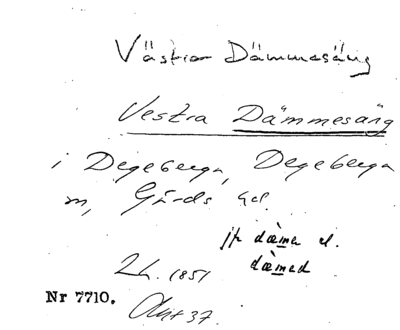 Västra Dämmesäng
Vestra Dämmesäng
i Degeberga, Degeberga
sn, Gärds hd.
jfr dæma el.
dæmed
Lh. 1851
Nr 7710.
Akt 37.